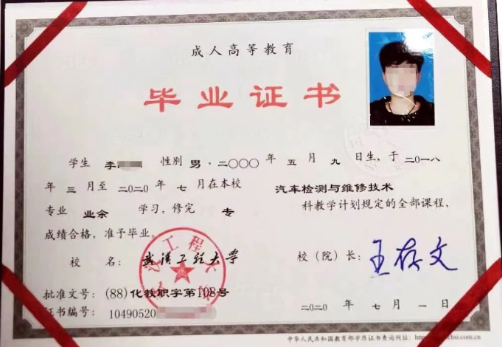 成人高等教育
毕业证书
学生 李 性别 男,二〇〇〇年 五月 九日生,于二〇一八
年 三月至二〇二〇年 七月在本校 汽车检测与维修技术
专业 业余 学习,修完 专 科教学计划规定的全部课程,
成绩合格,准予毕业。
校 名: 武汉工程大学 校(院)长: 王存文
批准文号: (88)化教职字第108号
证书编号: 10490520
二〇二〇年 七月 一日
中华人民共和国教育部学历证书查询网址: